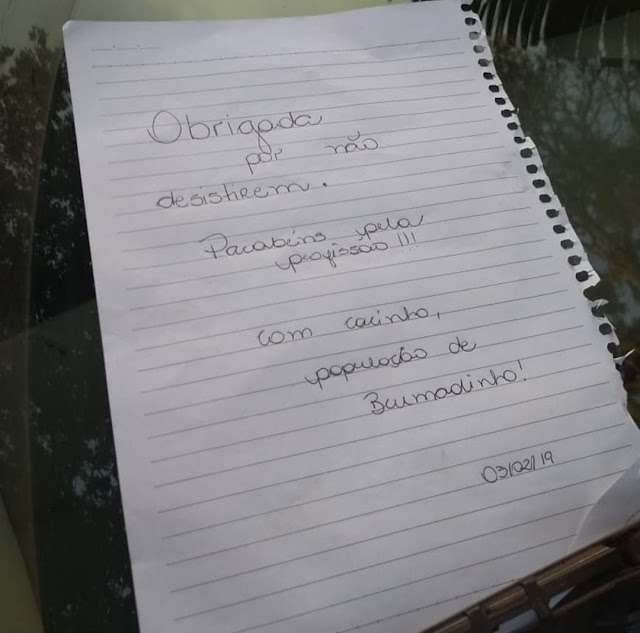 Obrigada
por não
desistirem.
Parabéns pela
profissão!!!
com carinho,
população de
Brumadinho!
03/02/19